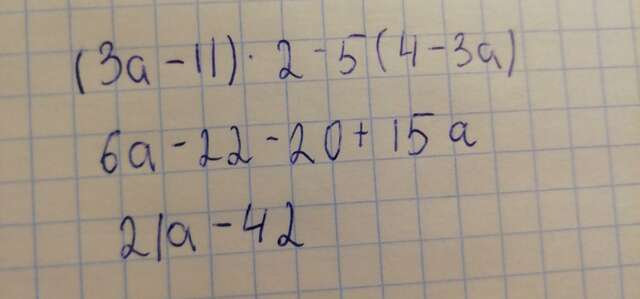 (3a - 11) · 2 - 5 (4 - 3a)
6a - 22 - 20 + 15a
21a - 42